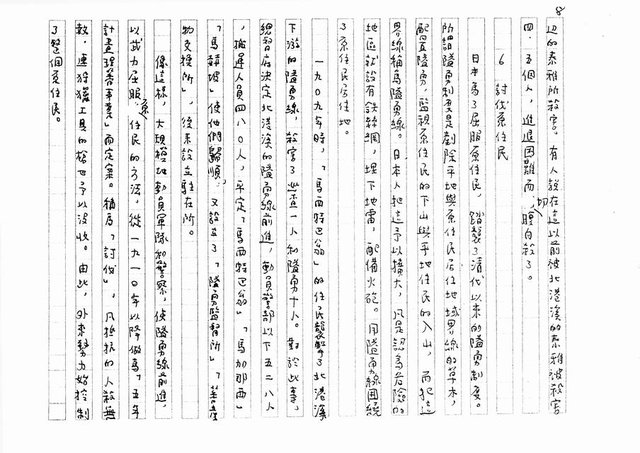 8
迎的泰雅所殺害。有人說在這以前被北港溪的泰雅被殺害
四、五個人，進退困難而切腹自殺了。
6 討伐原住民
日本為了屈服原住民，踏襲了清代以來的隘勇制度。
所謂隘勇制度是剷除平地與原住民居住地域界線的草木，
配置隘勇，監視原住民的下山與平地住民的入山，而把這
界線稱為隘勇線。日本人把這予以擴大，凡是認為危險的
地區就設有鉄絲網，埋下地雷，配備火砲。用隘勇線圍繞
了原住民居住地。
一九〇九年時，「馬西特巴翁」的住民襲擊了北港溪
下游的隘勇線，殺害了巡查一人和隘勇十人。對於此事，
總督府決定北港溪的隘勇線前進，動員警部以下五二八人
，搬運人員四八〇人，平定「馬西特巴翁」「馬加那西」
「馬轄坡」使他們歸順，又設立了「隘勇監督所」「蕃產
物交換所」，後來設立駐在所。
像這樣，大規模地動員軍隊和警察，使隘勇線前進，
以武力屈服原住民的方法，從一九一〇年以降做為「五年
計畫理蕃事業」而定案。稱為「討伐」，凡抵抗的人殺無
赦，連狩獵工具的槍也予以沒收。由此，外來勢力始控制
了整個原住民。